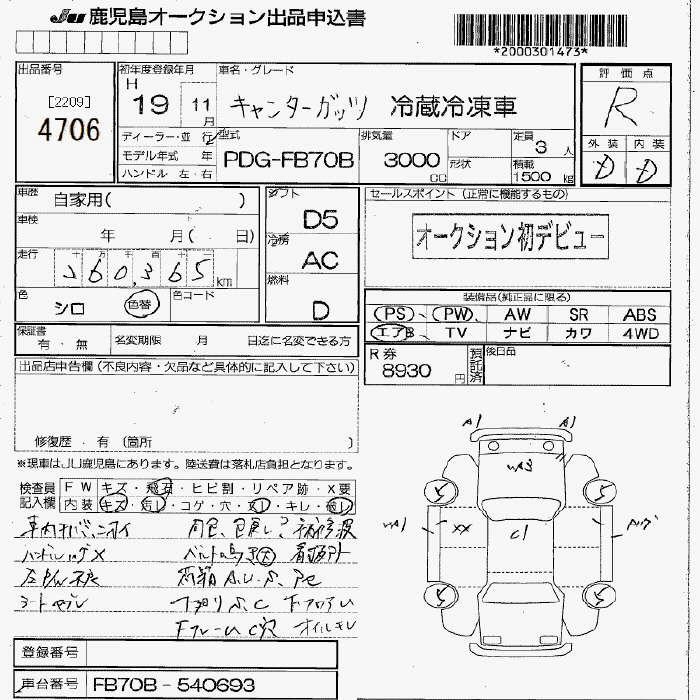 JU 鹿児島オークション出品申込書
*2000301473*
出品番号
[2209]
4706
初年度登録年月
H
19 11
月
車名・グレード
キャンターガッツ 冷蔵冷凍車
評価点
R
外装 内装
D D
ディーラー・並 行
モデル年式 年
ハンドル 左・右
型式
PDG-FB70B
排気量
3000
CC
ドア
形状
定員
3 人
積載
1500 kg
車歴
自家用( )
車検
年 月( 日)
走行
十 万 千 百 十
260,365 km
色
シロ 色替
色コード
シフト
D5
冷房
AC
燃料
D
セールスポイント (正常に機能するもの)
オークション初デビュー
装備品(純正品に限る)
PS、 PW、 AW SR ABS
エアB TV ナビ カワ 4WD
保証書
有・無
名変期限 月 日迄に名変できる方
R券
8930 円
預託済
後日品
出品店申告欄(不良内容・欠品など具体的に記入して下さい)
修復歴・有 (箇所 )
※現車はJU鹿児島にあります。陸送費は落札店負担となります。
検査員
記入欄
FW キズ・飛石・ヒビ割・リペア跡・X要
内装 キズ・汚レ・コゲ・穴・変レ・キレ・破レ
A1 A1
WA3
WA1 XX C1
5 5
5 5
シートヤブレ
A.U.S.
オイルモレ
登録番号
車台番号 FB70B-540693